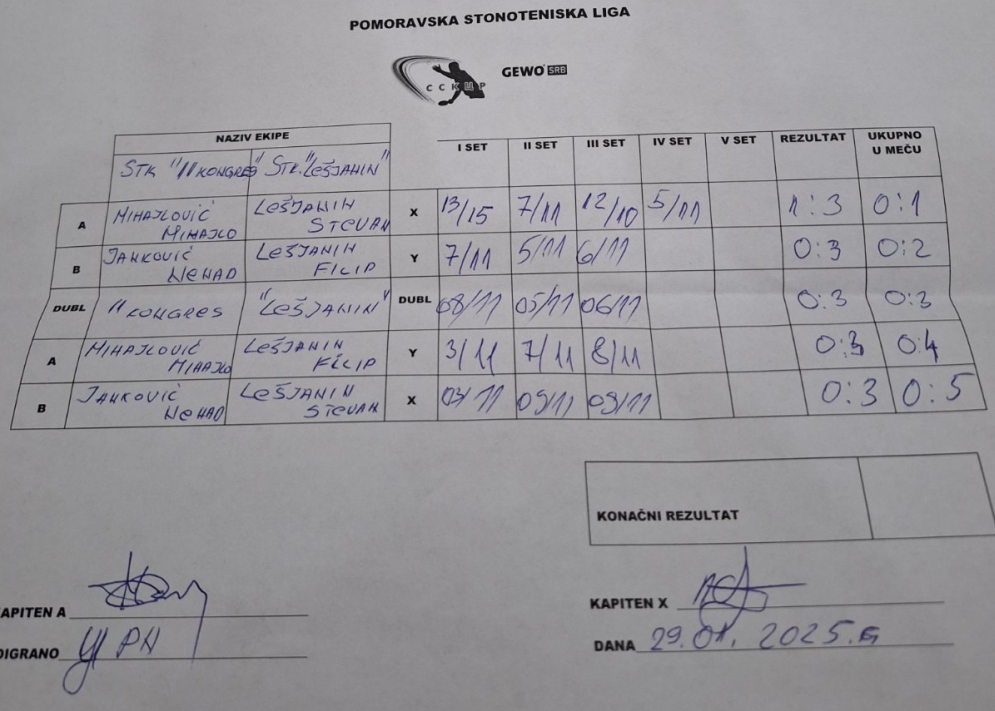 POMORAVSKA STONOTENISKA LIGA
ССКЦР GEWO SRB
NAZIV EKIPE I SET II SET III SET IV SET V SET REZULTAT UKUPNO U MEČU
STK "11 KONGRES" STK. "LEŠJANIN"
A MIHAJLOVIĆ MIHAJLO LEŠJANIN STEVAN X 13/15 7/11 12/10 5/11 1:3 0:1
B JANKOVIĆ NENAD LEŠJANIN FILIP Y 7/11 5/11 6/11 0:3 0:2
DUBL "KONGRES "LEŠJANIN" DUBL 08/11 05/11 06/11 0:3 0:3
A MIHAJLOVIĆ MIHAJLO LEŠJANIN FILIP Y 3/11 7/11 8/11 0:3 0:4
B JANKOVIĆ NENAD LEŠJANIN STEVAN X 03/11 09/11 09/11 0:3 0:5
KONAČNI REZULTAT
KAPITEN A
KAPITEN X
DIGRANO
DANA 29.01. 2025.G